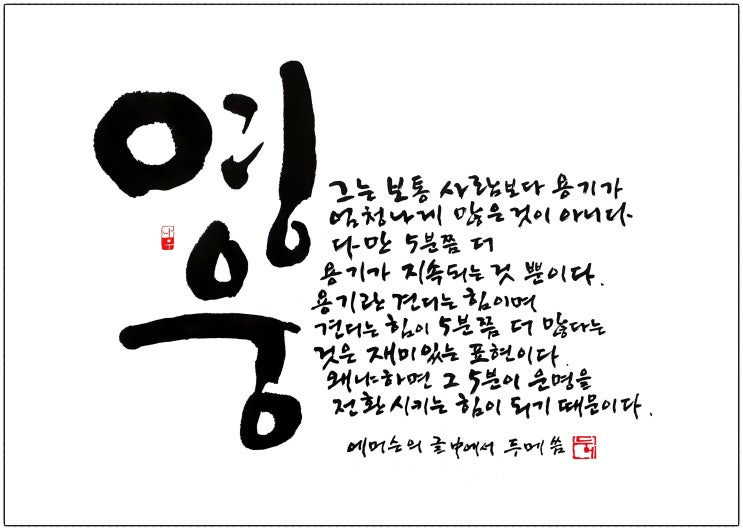 영웅
그는 보통 사람보다 용기가
엄청나게 많은것이 아니다
다만 5분쯤 더
용기가 지속되는것 뿐이다.
용기란 견디는 힘이며
견디는 힘이 5분쯤 더 많다는
것은 재미있는 표현이다.
왜냐하면 그 5분이 운명을
전환시키는 힘이 되기 때문이다.
에머슨의 글中에서 두메 씀
두메